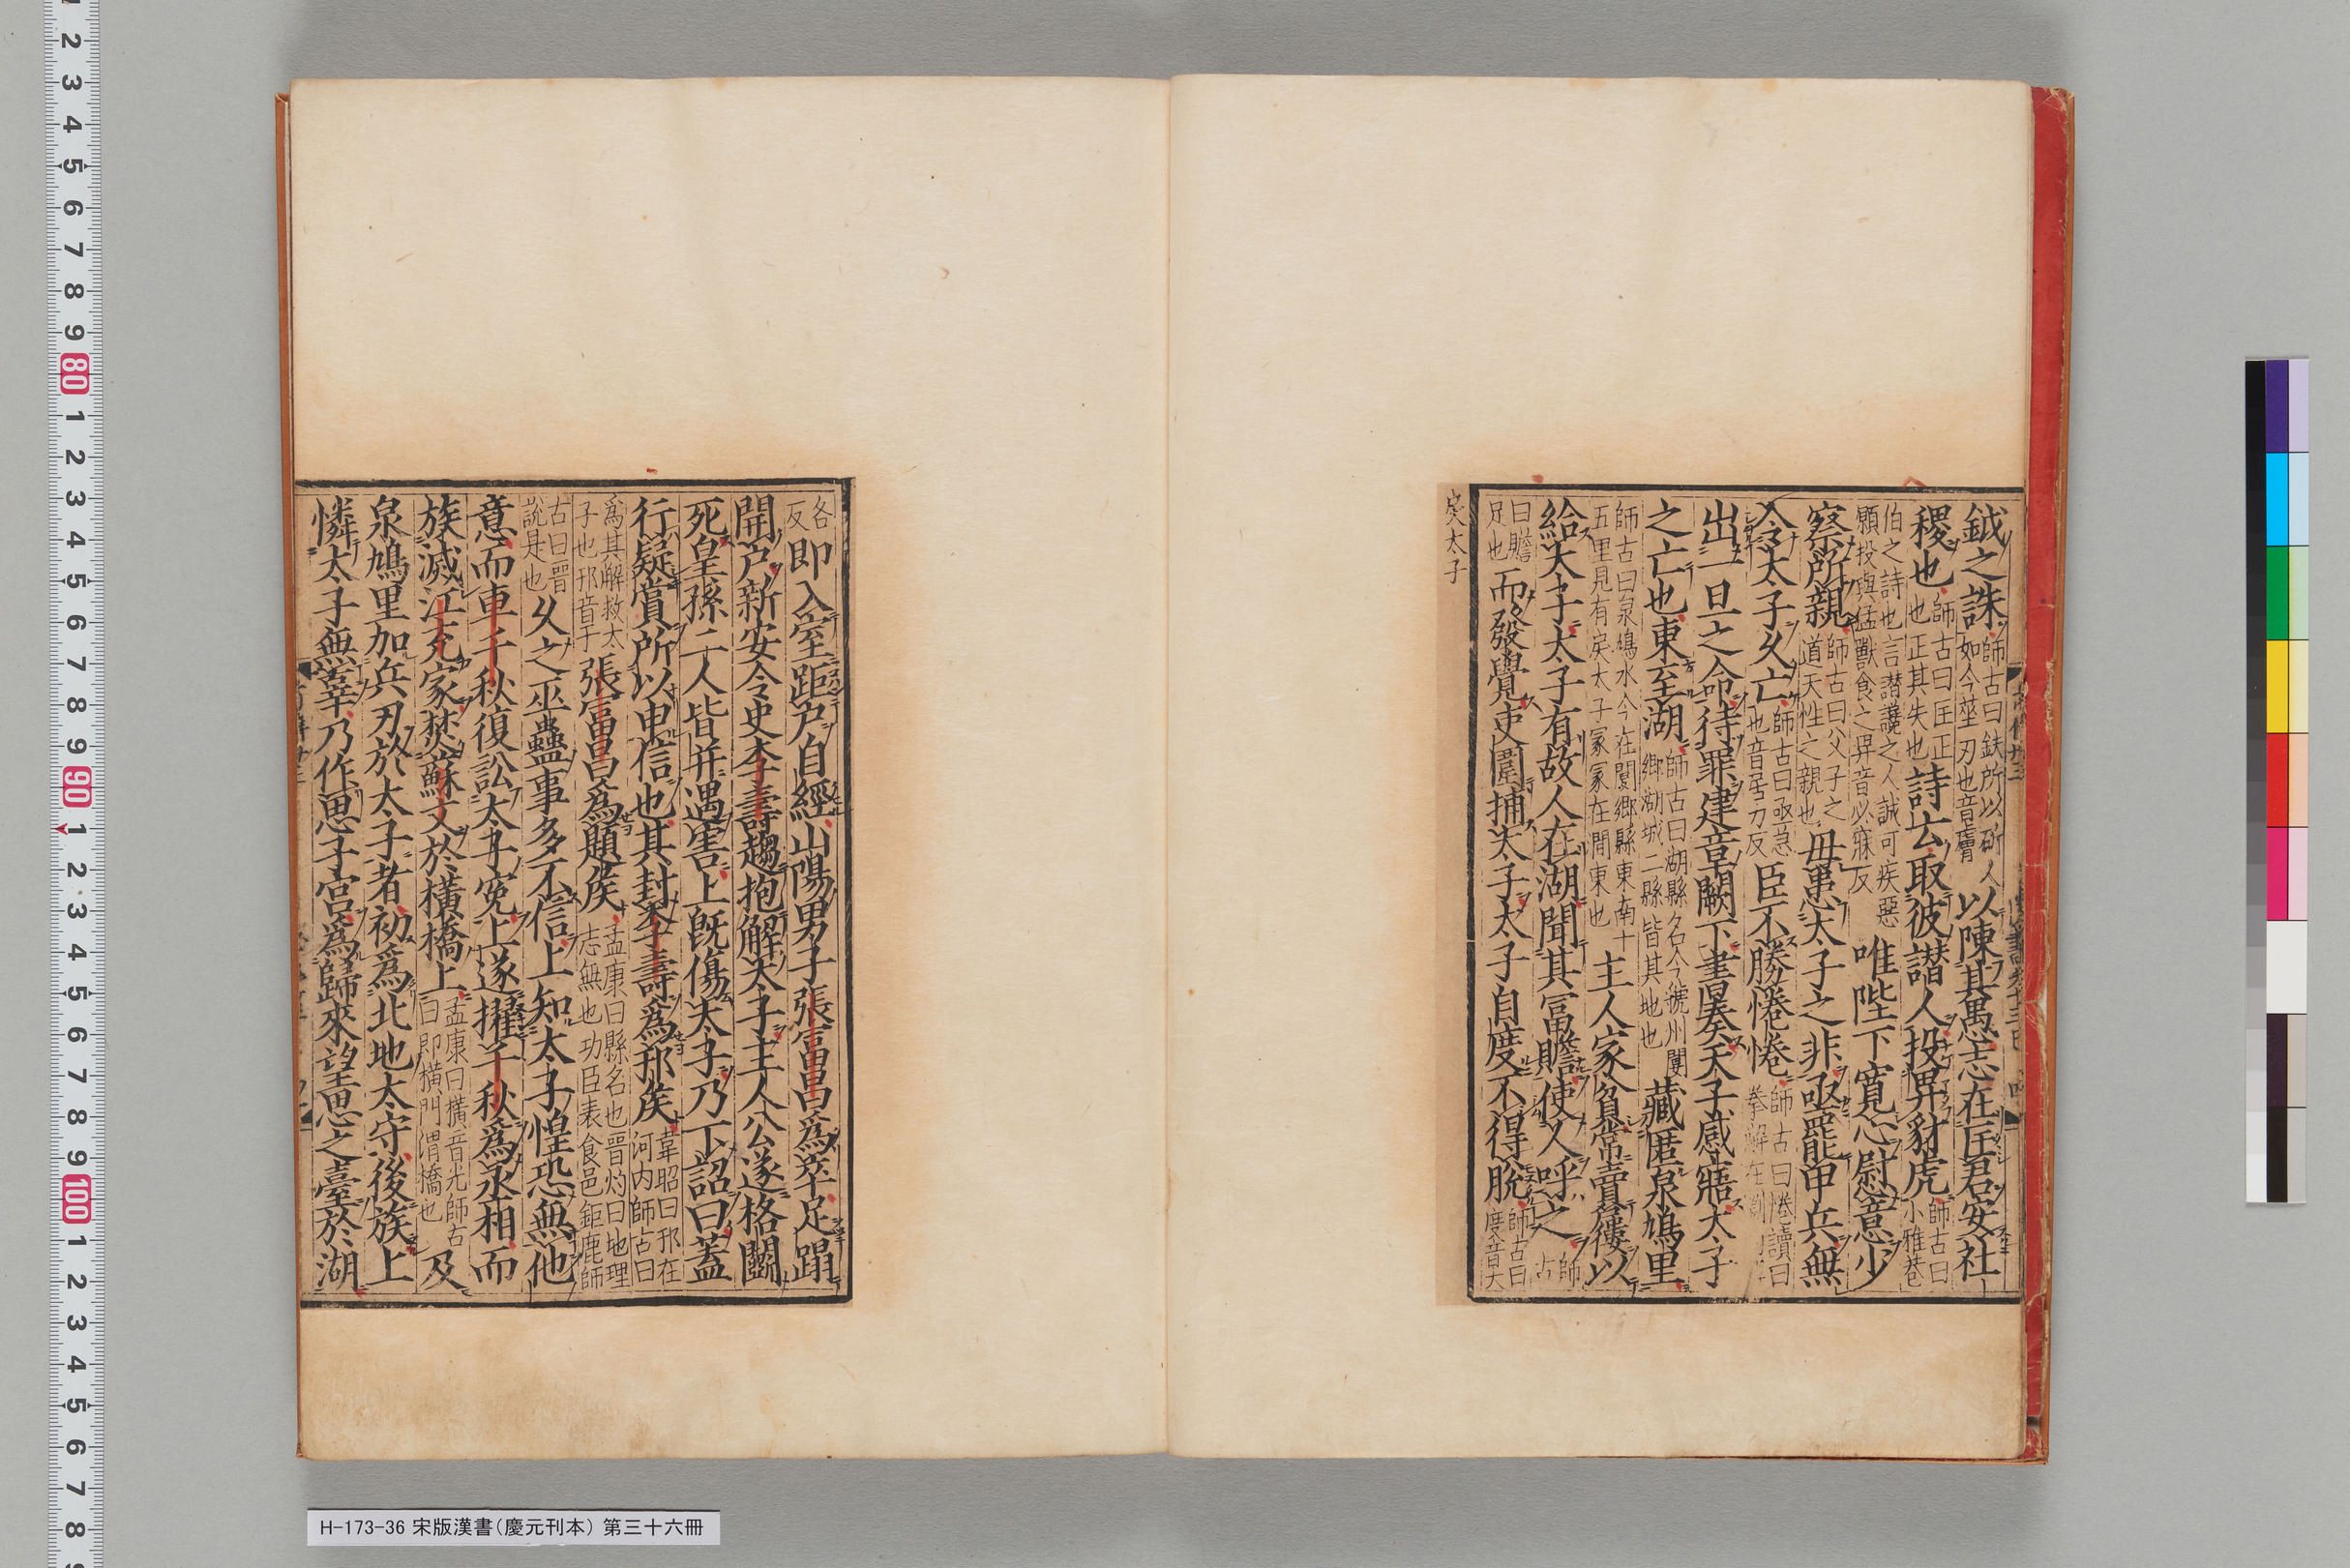 鈇之誅師古曰鈇所以斫人如今莝刃也音膚以陳其愚志在匡君安社
稷也師古曰匡正也正其失也詩云取彼譖人投畀豺虎師古曰小雅巷
伯之詩也言譖讒之人誠可疾惡願投與猛獸食之畀音必寐反唯陛下寬心慰意少
察所親師古曰父子之道天性之親也毋患太子之非亟罷甲兵無
令太子久亡師古曰亟急也音居力反臣不勝惓惓師古曰惓讀曰拳解在劉
出一旦之命待罪建章闕下書奏天子感寤太子
之亡也東至湖師古曰湖縣名今虢州閿鄉湖城二縣皆其地也藏匿泉鳩里
師古曰泉鳩水今在閿鄉縣東南十五里見有戾太子冢冢在閒東也主人家貧常賣屨以
給太子太子有故人在湖聞其富贍使人呼之師古
曰贍足也而發覺吏圍捕太子太子自度不得脫師古曰度音大
戾太子
各反即入室距户自經山陽男子張富昌爲卒足蹋
開户新安令史李壽趨抱解太子主人公遂格鬬
死皇孫二人皆并遇害上既傷太子乃下詔曰蓋
行疑賞所以申信也其封李壽爲邘侯韋昭曰邘在河内師古曰
爲其解救太子也邘音于張富昌爲題侯孟康曰縣名也晉灼曰地理志無也功臣表食邑鉅鹿師
古曰晉說是也久之巫蠱事多不信上知太子惶恐無他
意而車千秋復訟太子冤上遂擢千秋爲丞相而
族滅江充家焚蘇文於橫橋上孟康曰橫音光師古曰即橫門渭橋也及
泉鳩里加兵刃於太子者初爲北地太守後族上
憐太子無辜乃作思子宮爲歸來望思之臺於湖
H-173-36 宋版漢書（慶元刊本） 第三十六冊